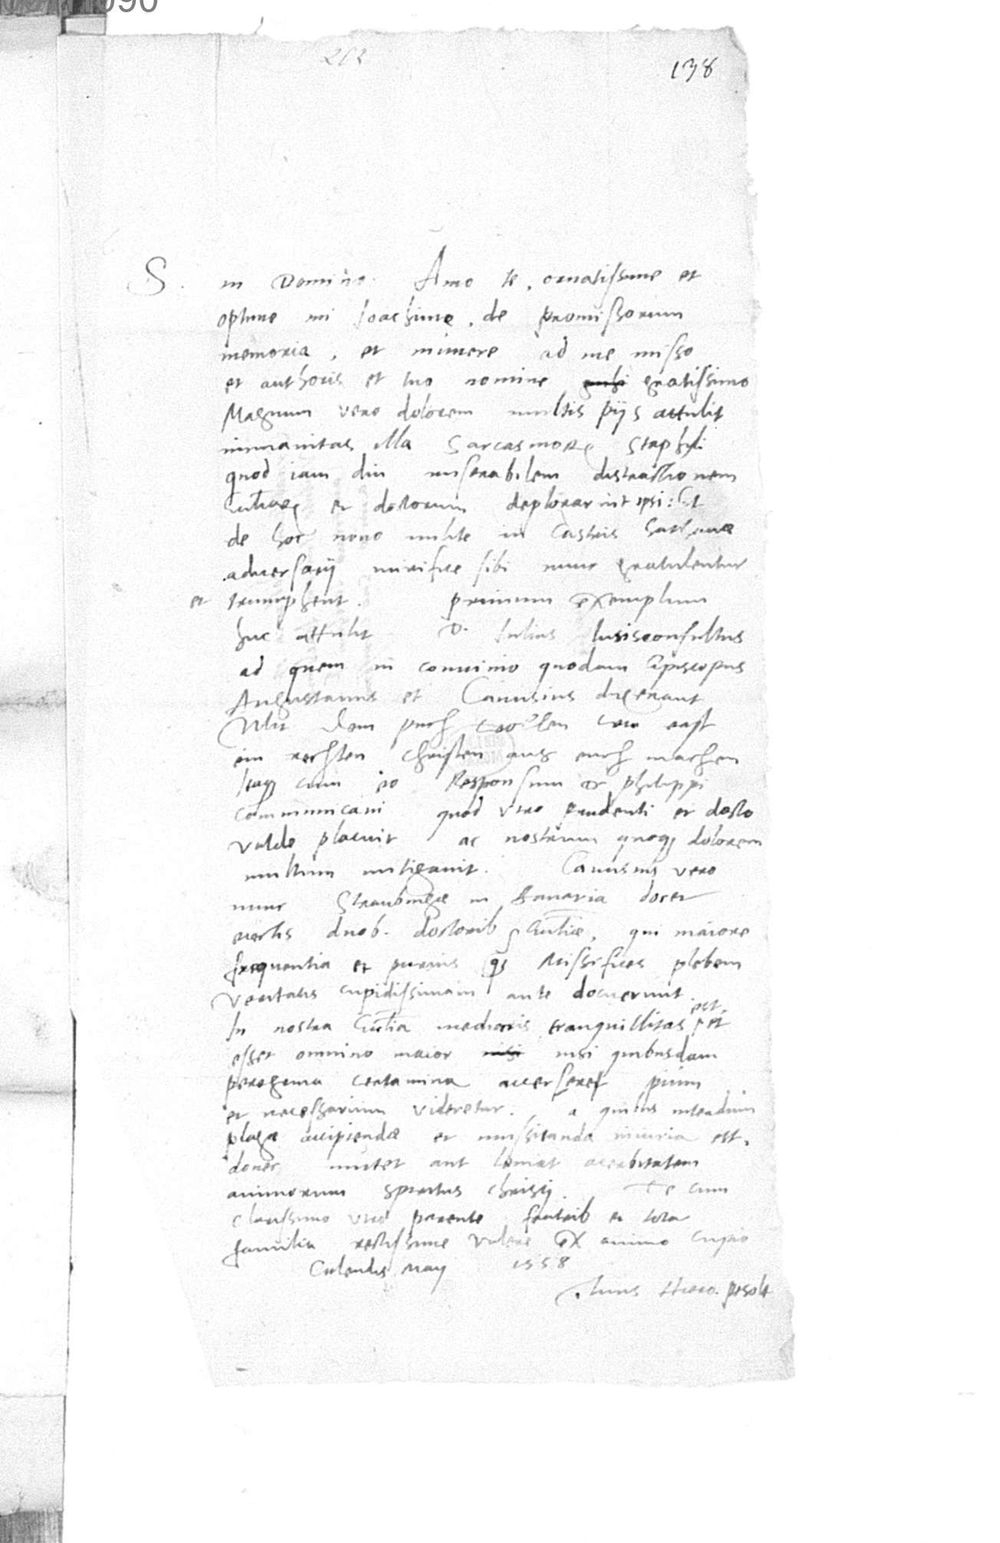 090
138
S. in Domino. Amo te, ornatissime et
optime mi Joachime, de promissorum
memoria, et munere ad me misso
et authoris et tuo nomine gratissimo
Magnum vero dolorem multis pijs attulit
inmanitas illa Staphyli
quod iam diu miserabilem distractionem
et doctorum deplorarint ipsi: Et
de hoc novo milite in castris Sathanae
adversarij mirifice sibi nunc gratulentur
et triumphent. primum exemplum
huc attulit D. Julius Jurisconsultus
ad quem in convivio quodam Episcopus
Augustanus et Canisius dixerant
wir ein rast
ein rechten Christen aus euch machen
Itaque cum eo Responsum D. Philippi
communicavi quod viro prudenti et docto
valde placuit ac nostrum quoque dolorem
multum mitigavit. Canisius vero
nunc Straubingae in Bavaria docet
eiectis duob. doctorib Ecclesiae, qui maiore
frequentia et purius Missifices plebem
veritatis cupidissimam ante docuerunt.
In nostra Ecclesia mediocris tranquillitas est, et
esset omnino maior nisi quibusdam
peregrina certamina accersere pium
et necessarium videretur. a quibus interdum
plagae accipiendae et mussitanda iniuria est,
donec mutet aut leniat acerbitatem
animorum spiritus Christi. Te cum
clarissimo viro parente fratrib et tota
familia rectissime valere ex animo cupio
Calendis Maij 1558
Tuus Hiero.